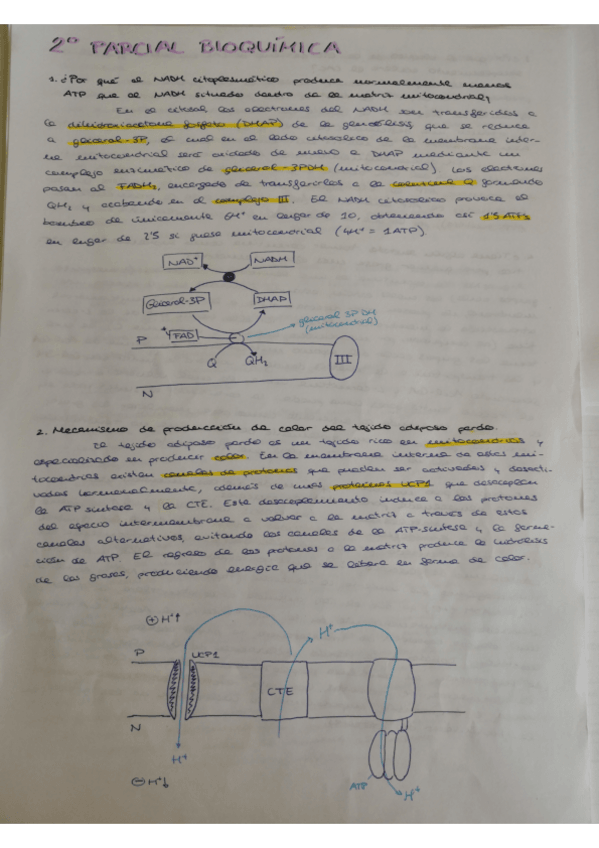 2º PARCIAL BIOQUÍMICA
1. ¿Por qué el NADH citoplasmático produce normalmente menos
ATP que el NADH situado dentro de la matriz mitocondrial?
En el citosol los electrones del NADH son transferidos a
la dihidroxiacetona fosfato (DHAP) de la glucólisis, que se reduce
a glicerol-3P, el cual en el lado citosólico de la membrana inter-
na mitocondrial será oxidado de nuevo a DHAP mediante un
complejo enzimático de glicerol-3PDH (mitocondrial). Los electrones
pasan al FADH2, encargado de transferirlos a la coenzima Q formando
QH2 y acabando en el complejo III. El NADH citosólico provoca el
bombeo de únicamente 6H+ en lugar de 10, obteniendo así 1'5 ATPs
en lugar de 2'5 si fuese mitocondrial (4H+ = 1ATP)
NAD+ NADH
Glicerol-3P DHAP
glicerol 3PDH
(mitocondrial)
P FAD
Q QH2 III
N
2. Mecanismo de producción de calor del tejido adiposo pardo.
El tejido adiposo pardo es un tejido rico en mitocondrias y
especializado en producir calor. En la membrana interna de estas mi-
tocondrias existen canales de protones que pueden ser activados y desacti-
vados hormonalmente, además de unas proteínas UCP1 que desacoplan
la ATP sintasa y la CTE. Este desacoplamiento induce a los protones
del espacio intermembrana a volver a la matriz a través de estos
canales alternativos, evitando los canales de la ATP-sintasa y la forma-
ción de ATP. El regreso de los protones a la matriz produce la hidrólisis
de las grasas, produciendo energía que se libera en forma de calor.
⊕ H+↑
P UCP1 H+
CTE
N
H+
⊖ H+↓ ATP H+